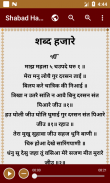 4:44
Shabad Ha...
शब्द हजारे
माझ महला ५ चउपदे घरु १ ॥
मेरा मनु लोचै गुर दरसन ताई ॥
बिलप करे चात्रिक की निआई ॥
त्रिखा न उतरै सांति न आवै बिनु दरसन संत
पिआरे जीउ ॥१॥
हउ घोली जीउ घोलि घुमाई गुर दरसन संत
पिआरे जीउ ॥१॥ रहाउ ॥
तेरा मुखु सुहावा जीउ सहज धुनि बाणी ॥
चिरु होआ देखे सारिंगपाणी ॥
धंनु सु देसु जहा तूं वसिआ मेरे सजण मीत मुरारे
जीउ ॥२॥